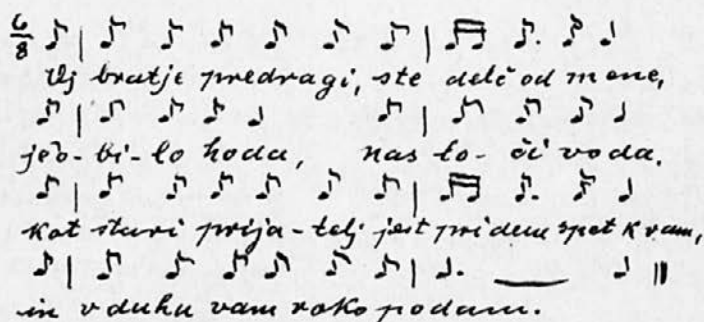 6/8
Vj bratje predragi, ste delč od mene,
je o-bi-lo hoda, nas lo-či voda.
Kot stari prija-telj jest pridem spet k vam,
in v duhu vam roko podam.